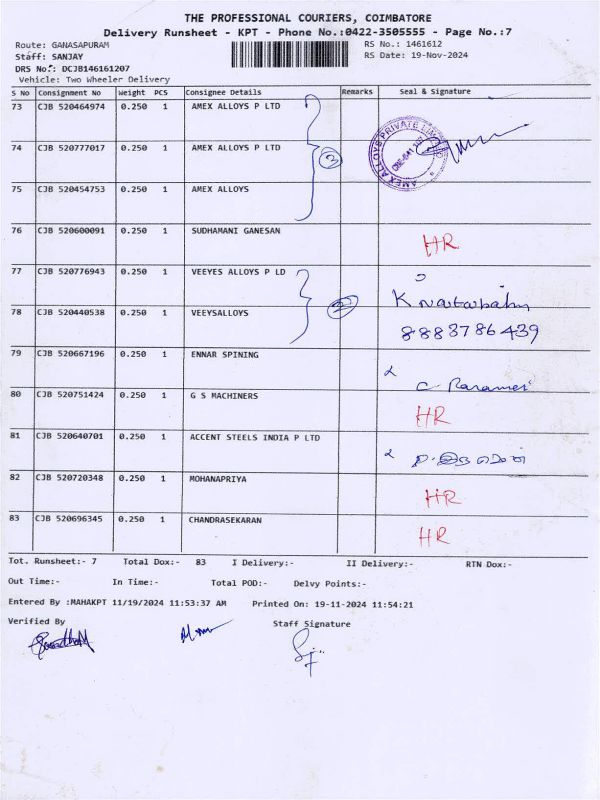 THE PROFESSIONAL COURIERS, COIMBATORE
Delivery Runsheet - KPT - Phone No.:0422-3505555 - Page No.:7
Route: GANASAPURAM RS No.: 1461612
Staff: SANJAY RS Date: 19-Nov-2024
DRS No.: DCJB146161207
Vehicle: Two Wheeler Delivery
S No Consignment No Weight PCS Consignee Details Remarks Seal & Signature
73 CJB 520464974 0.250 1 AMEX ALLOYS P LTD
74 CJB 520777017 0.250 1 AMEX ALLOYS P LTD 3 AMEX ALLOYS PRIVATE LIMITED
75 CJB 520454753 0.250 1 AMEX ALLOYS
76 CJB 520600091 0.250 1 SUDHAMANI GANESAN HR
77 CJB 520776943 0.250 1 VEEYES ALLOYS P LD
78 CJB 520440538 0.250 1 VEEYSALLOYS 2 8883786439
79 CJB 520667196 0.250 1 ENNAR SPINING
80 CJB 520751424 0.250 1 G S MACHINERS HR
81 CJB 520640701 0.250 1 ACCENT STEELS INDIA P LTD
82 CJB 520720348 0.250 1 MOHANAPRIYA HR
83 CJB 520696345 0.250 1 CHANDRASEKARAN HR
Tot. Runsheet:- 7 Total Dox:- 83 I Delivery:- II Delivery:- RTN Dox:-
Out Time:- In Time:- Total POD:- Delvy Points:-
Entered By :MAHAKPT 11/19/2024 11:53:37 AM Printed On: 19-11-2024 11:54:21
Verified By Staff Signature